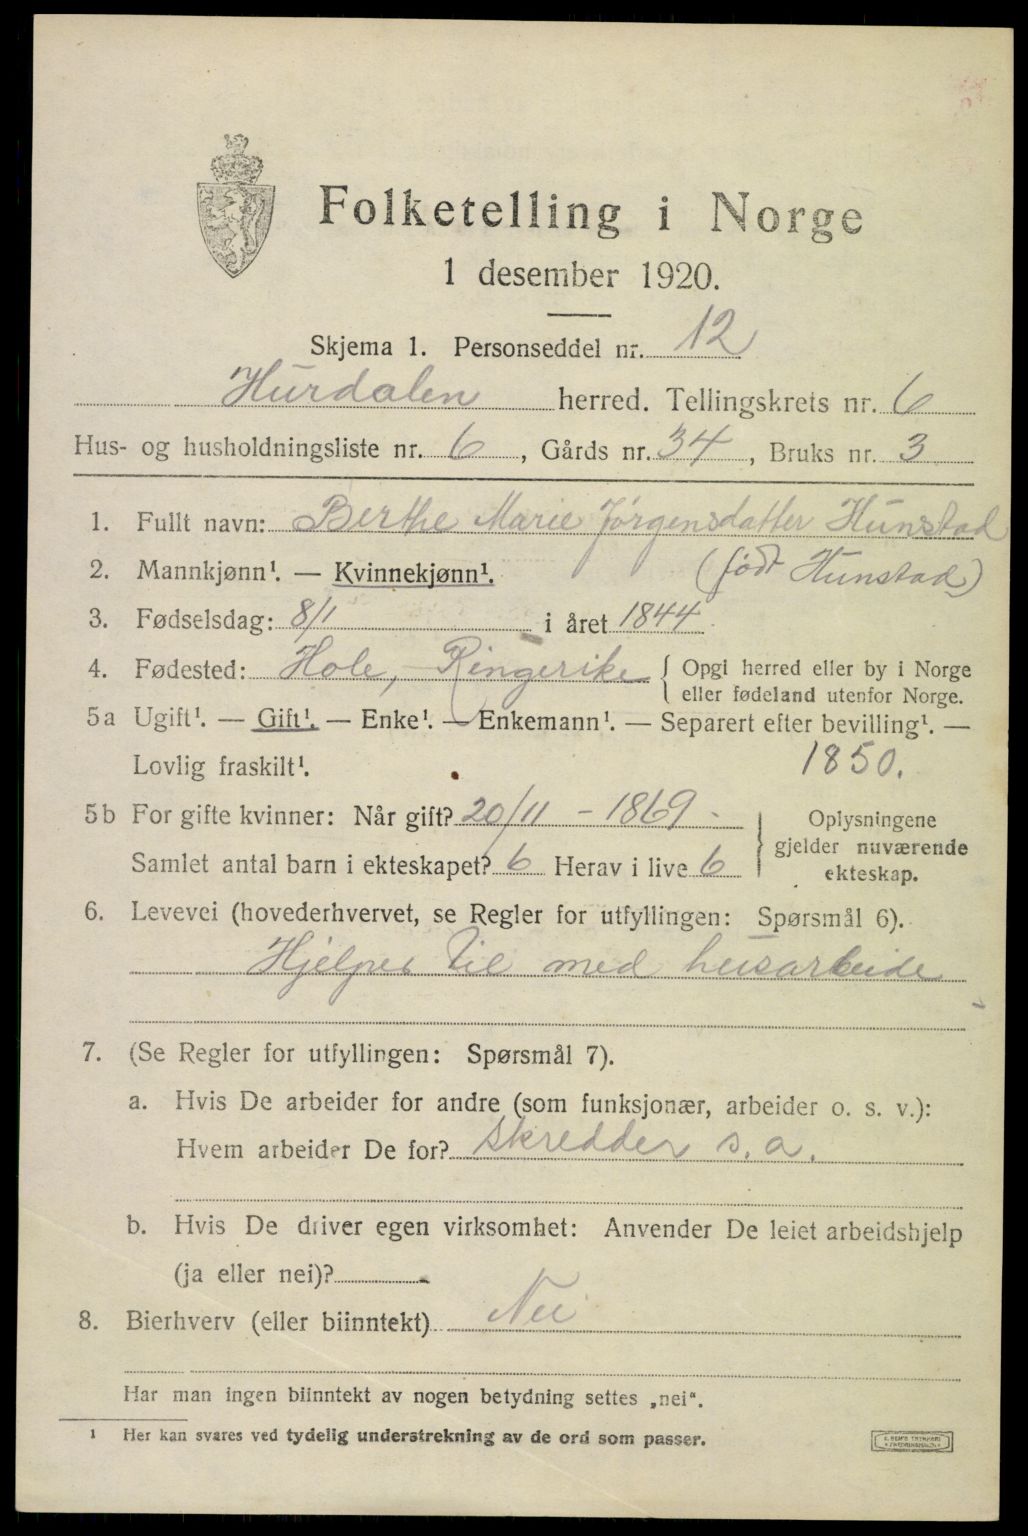 Folketelling i Norge
1 desember 1920.
Skjema 1. Personseddel nr. 12
Hurdalen herred. Tellingskrets nr. 6
Hus- og husholdningsliste nr. 6, Gårds nr. 34, Bruks nr. 3
1. Fullt navn: Berthe Marie Jørgensdatter Hunstad
2. Mannkjønn¹. — Kvinnekjønn¹. (født Hunstad)
3. Fødselsdag: 8/1 i året 1844
4. Fødested: Hole, Ringerike { Opgi herred eller by i Norge
eller fødeland utenfor Norge.
5a Ugift¹. — Gift¹. — Enke¹. — Enkemann¹. — Separert efter bevilling¹. —
Lovlig fraskilt¹. 1850.
5b For gifte kvinner: Når gift? 20/11 - 1869 -
Samlet antal barn i ekteskapet? 6 Herav i live 6
} Oplysningene
gjelder nuværende
ekteskap.
6. Levevei (hovederhvervet, se Regler for utfyllingen: Spørsmål 6).
Hjelper til med husarbeide
7. (Se Regler for utfyllingen: Spørsmål 7).
a. Hvis De arbeider for andre (som funksjonær, arbeider o. s. v.):
Hvem arbeider De for? skredder s. a.
b. Hvis De driver egen virksomhet: Anvender De leiet arbeidshjelp
(ja eller nei)?
8. Bierhverv (eller biinntekt) Nei
Har man ingen biinntekt av nogen betydning settes „nei“.
¹ Her kan svares ved tydelig understrekning av de ord som passer.